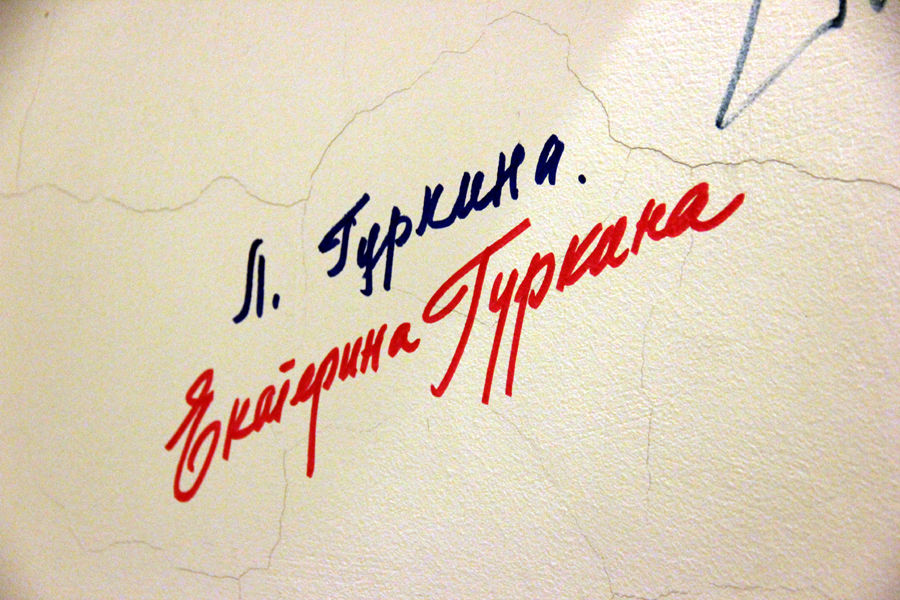 Л. Гуркина.
Екатерина Гуркина